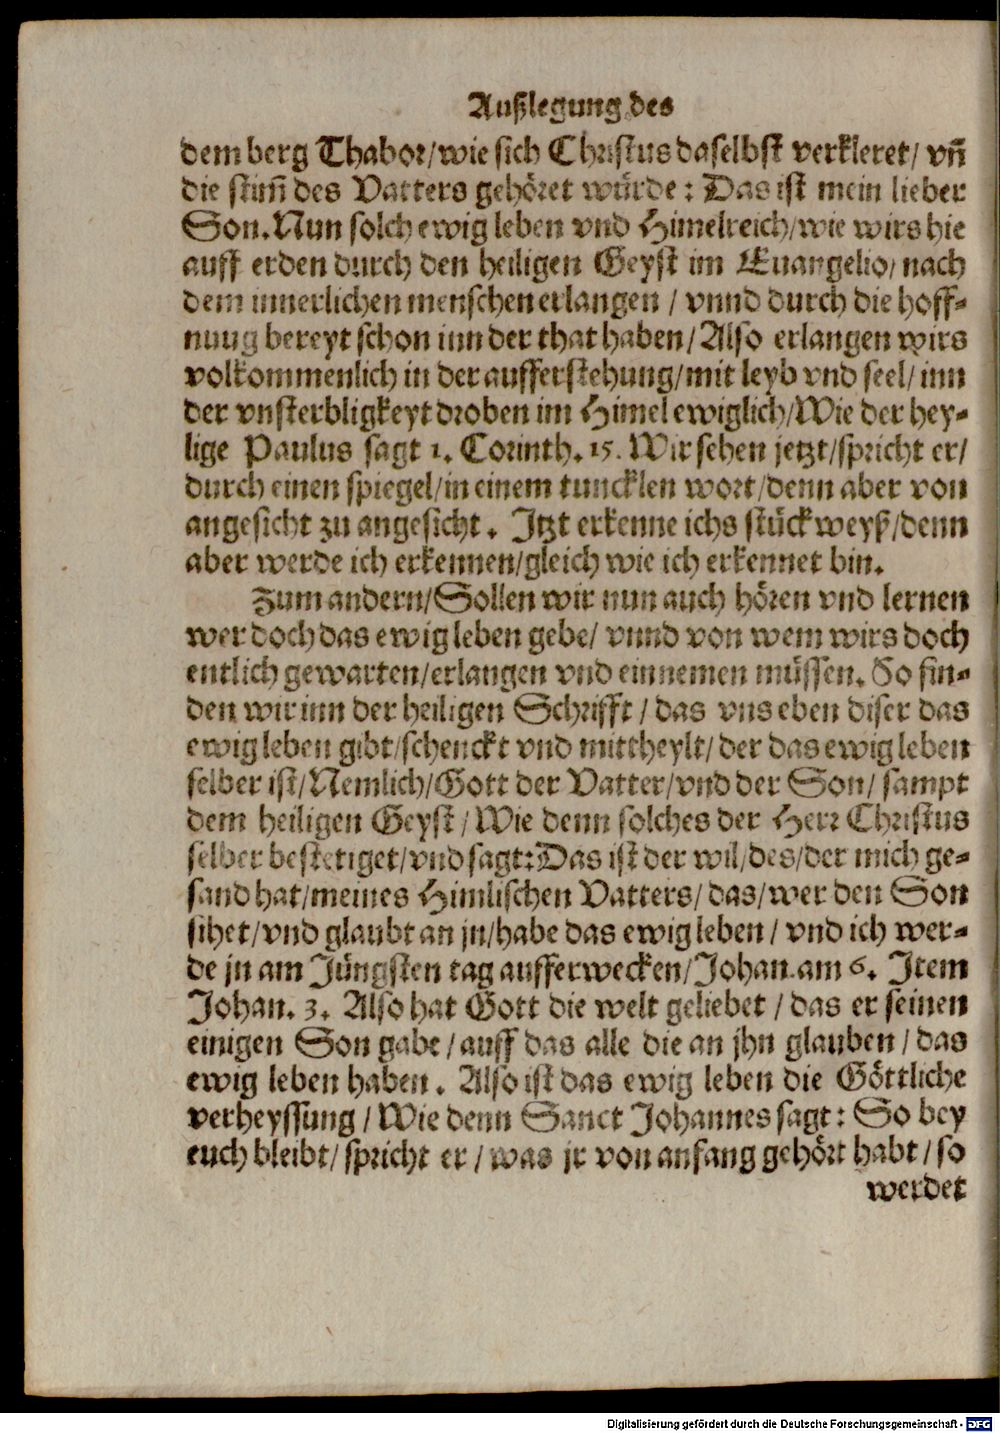 Außlegung des
dem berg Thabor/wie sich Christus daselbst verkleret/ vñ
die stim̃ des Vatters gehöret würde: Das ist mein lieber
Son. Nun solch ewig leben vnd Himelreich/wie wirs hie
auff erden durch den heiligen Geyst im Euangelio/ nach
dem innerlichen menschen erlangen / vnnd durch die hoff-
nuug bereyt schon inn der that haben/ Also erlangen wirs
volkommenlich in der aufferstehung/mit leyb vnd seel/ inn
der vnsterbligkeyt droben im Himel ewiglich/Wie der hey-
lige Paulus sagt 1. Corinth. 15. Wir sehen jetzt/spricht er/
durch einen spiegel/in einem tuncklen wort/denn aber von
angesicht zu angesicht. Itzt erkenne ichs stückweyß/denn
aber werde ich erkennen/gleich wie ich erkennet bin.
Zum andern/Sollen wir nun auch hören vnd lernen
wer doch das ewig leben gebe/ vnnd von wem wirs doch
entlich gewarten/erlangen vnd einnemen müssen. So fin-
den wir inn der heiligen Schrifft / das vns eben diser das
ewig leben gibt/schenckt vnd mittheylt/ der das ewig leben
selber ist/Nemlich/Gott der Vatter/vnd der Son/ sampt
dem heiligen Geyst / Wie denn solches der Herr Christus
selber bestetiget/vnd sagt: Das ist der wil/des/der mich ge-
sand hat/meines Himlischen Vatters/ das/wer den Son
sihet/vnd glaubt an jn/habe das ewig leben / vnd ich wer-
de jn am Jüngsten tag aufferwecken/Johan. am 6. Item
Johan. 3. Also hat Gott die welt geliebet / das er seinen
einigen Son gabe / auff das alle die an jhn glauben / das
ewig leben haben. Also ist das ewig leben die Göttliche
verheyssung / Wie denn Sanct Johannes sagt: So bey
euch bleibt/ spricht er / was jr von anfang gehört habt / so
werdet
Digitalisierung gefördert durch die Deutsche Forschungsgemeinschaft - DFG